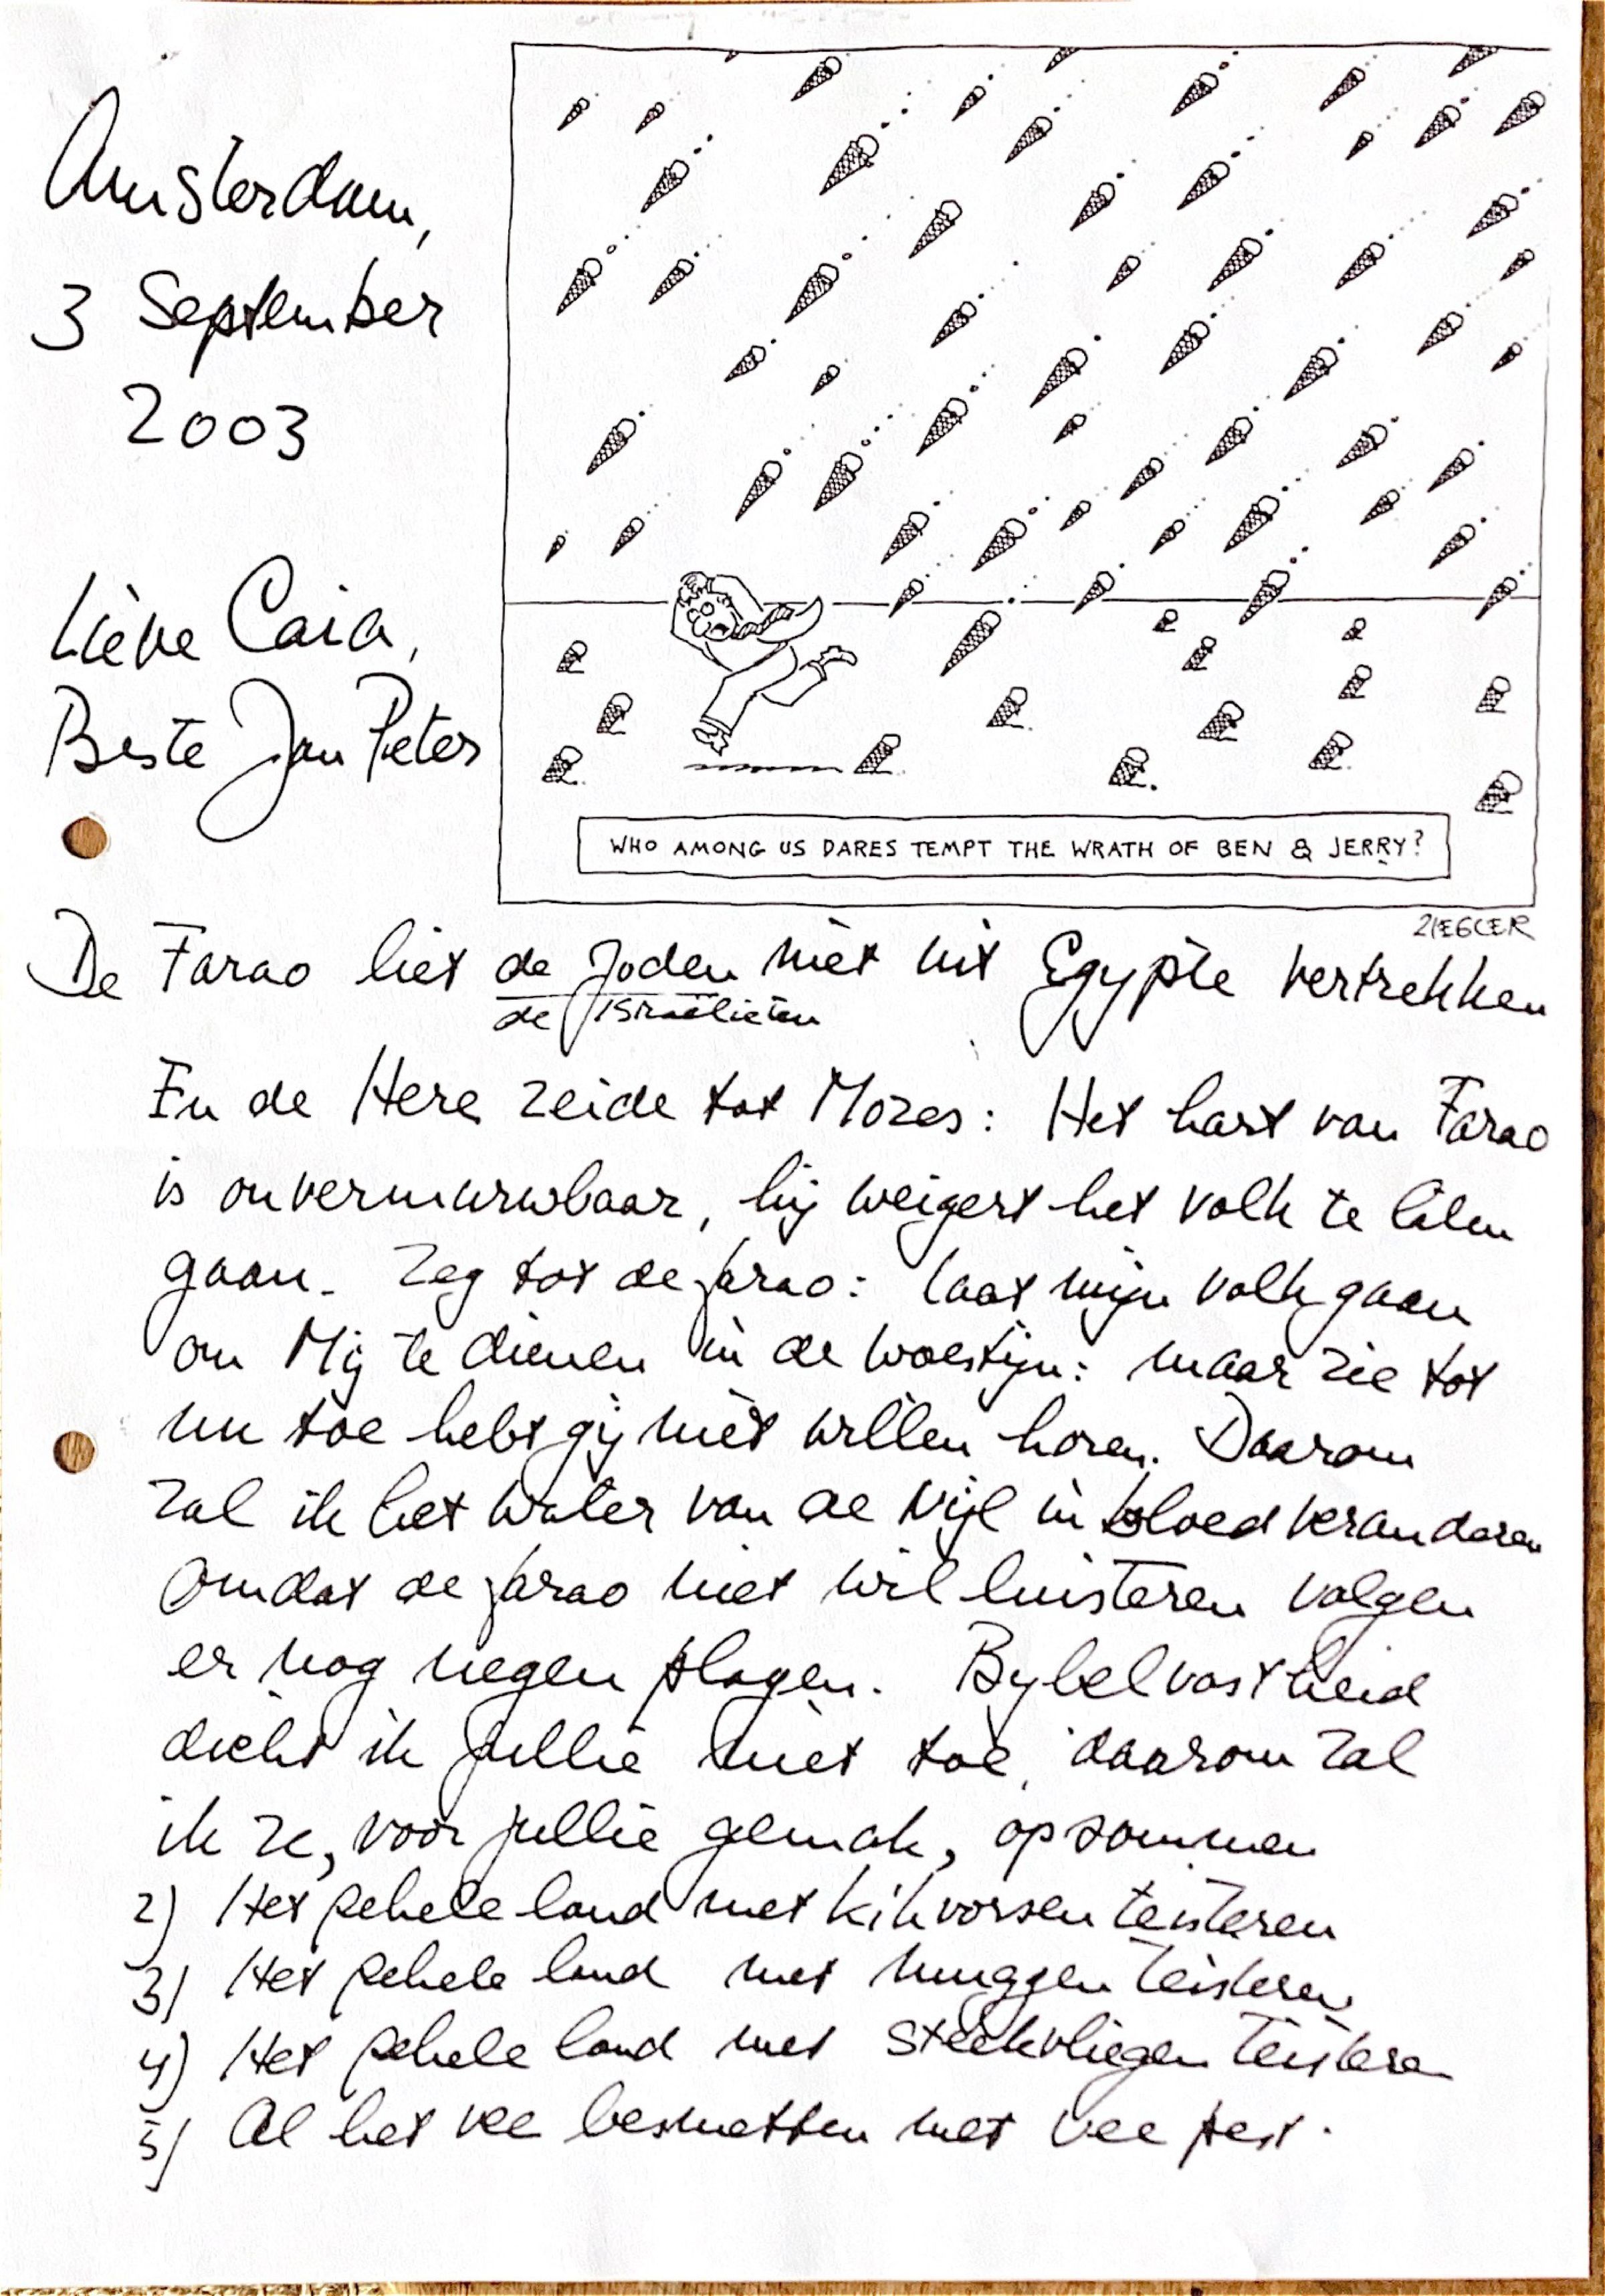 Amsterdam,
3 September
2003
Lieve Caia,
Beste Jan Peter
WHO AMONG US DARES TEMPT THE WRATH OF BEN & JERRY?
ZIEGLER
De Farao liet de Joden niet uit Egypte vertrekken
de Israëlieten
En de Here zeide tot Mozes: Het hart van Farao
is onvermurwbaar, hij weigert het volk te laten
gaan. Zeg tot de farao: laat mijn volk gaan
om Mij te dienen in de woestijn: maar zie tot
nu toe hebt gij niet willen horen. Daarom
zal ik het water van de Nijl in bloed veranderen
Omdat de farao niet wil luisteren volgen
er nog negen plagen. Bybelvastheid
dicht ik jullie niet toe, daarom zal
ik ze, voor jullie gemak, opsommen
2) Het gehele land met kikvorsen teisteren
3) Het gehele land met muggen teisteren
4) Het gehele land met steekvliegen teisteren
5) Al het vee besmetten met vee pest.